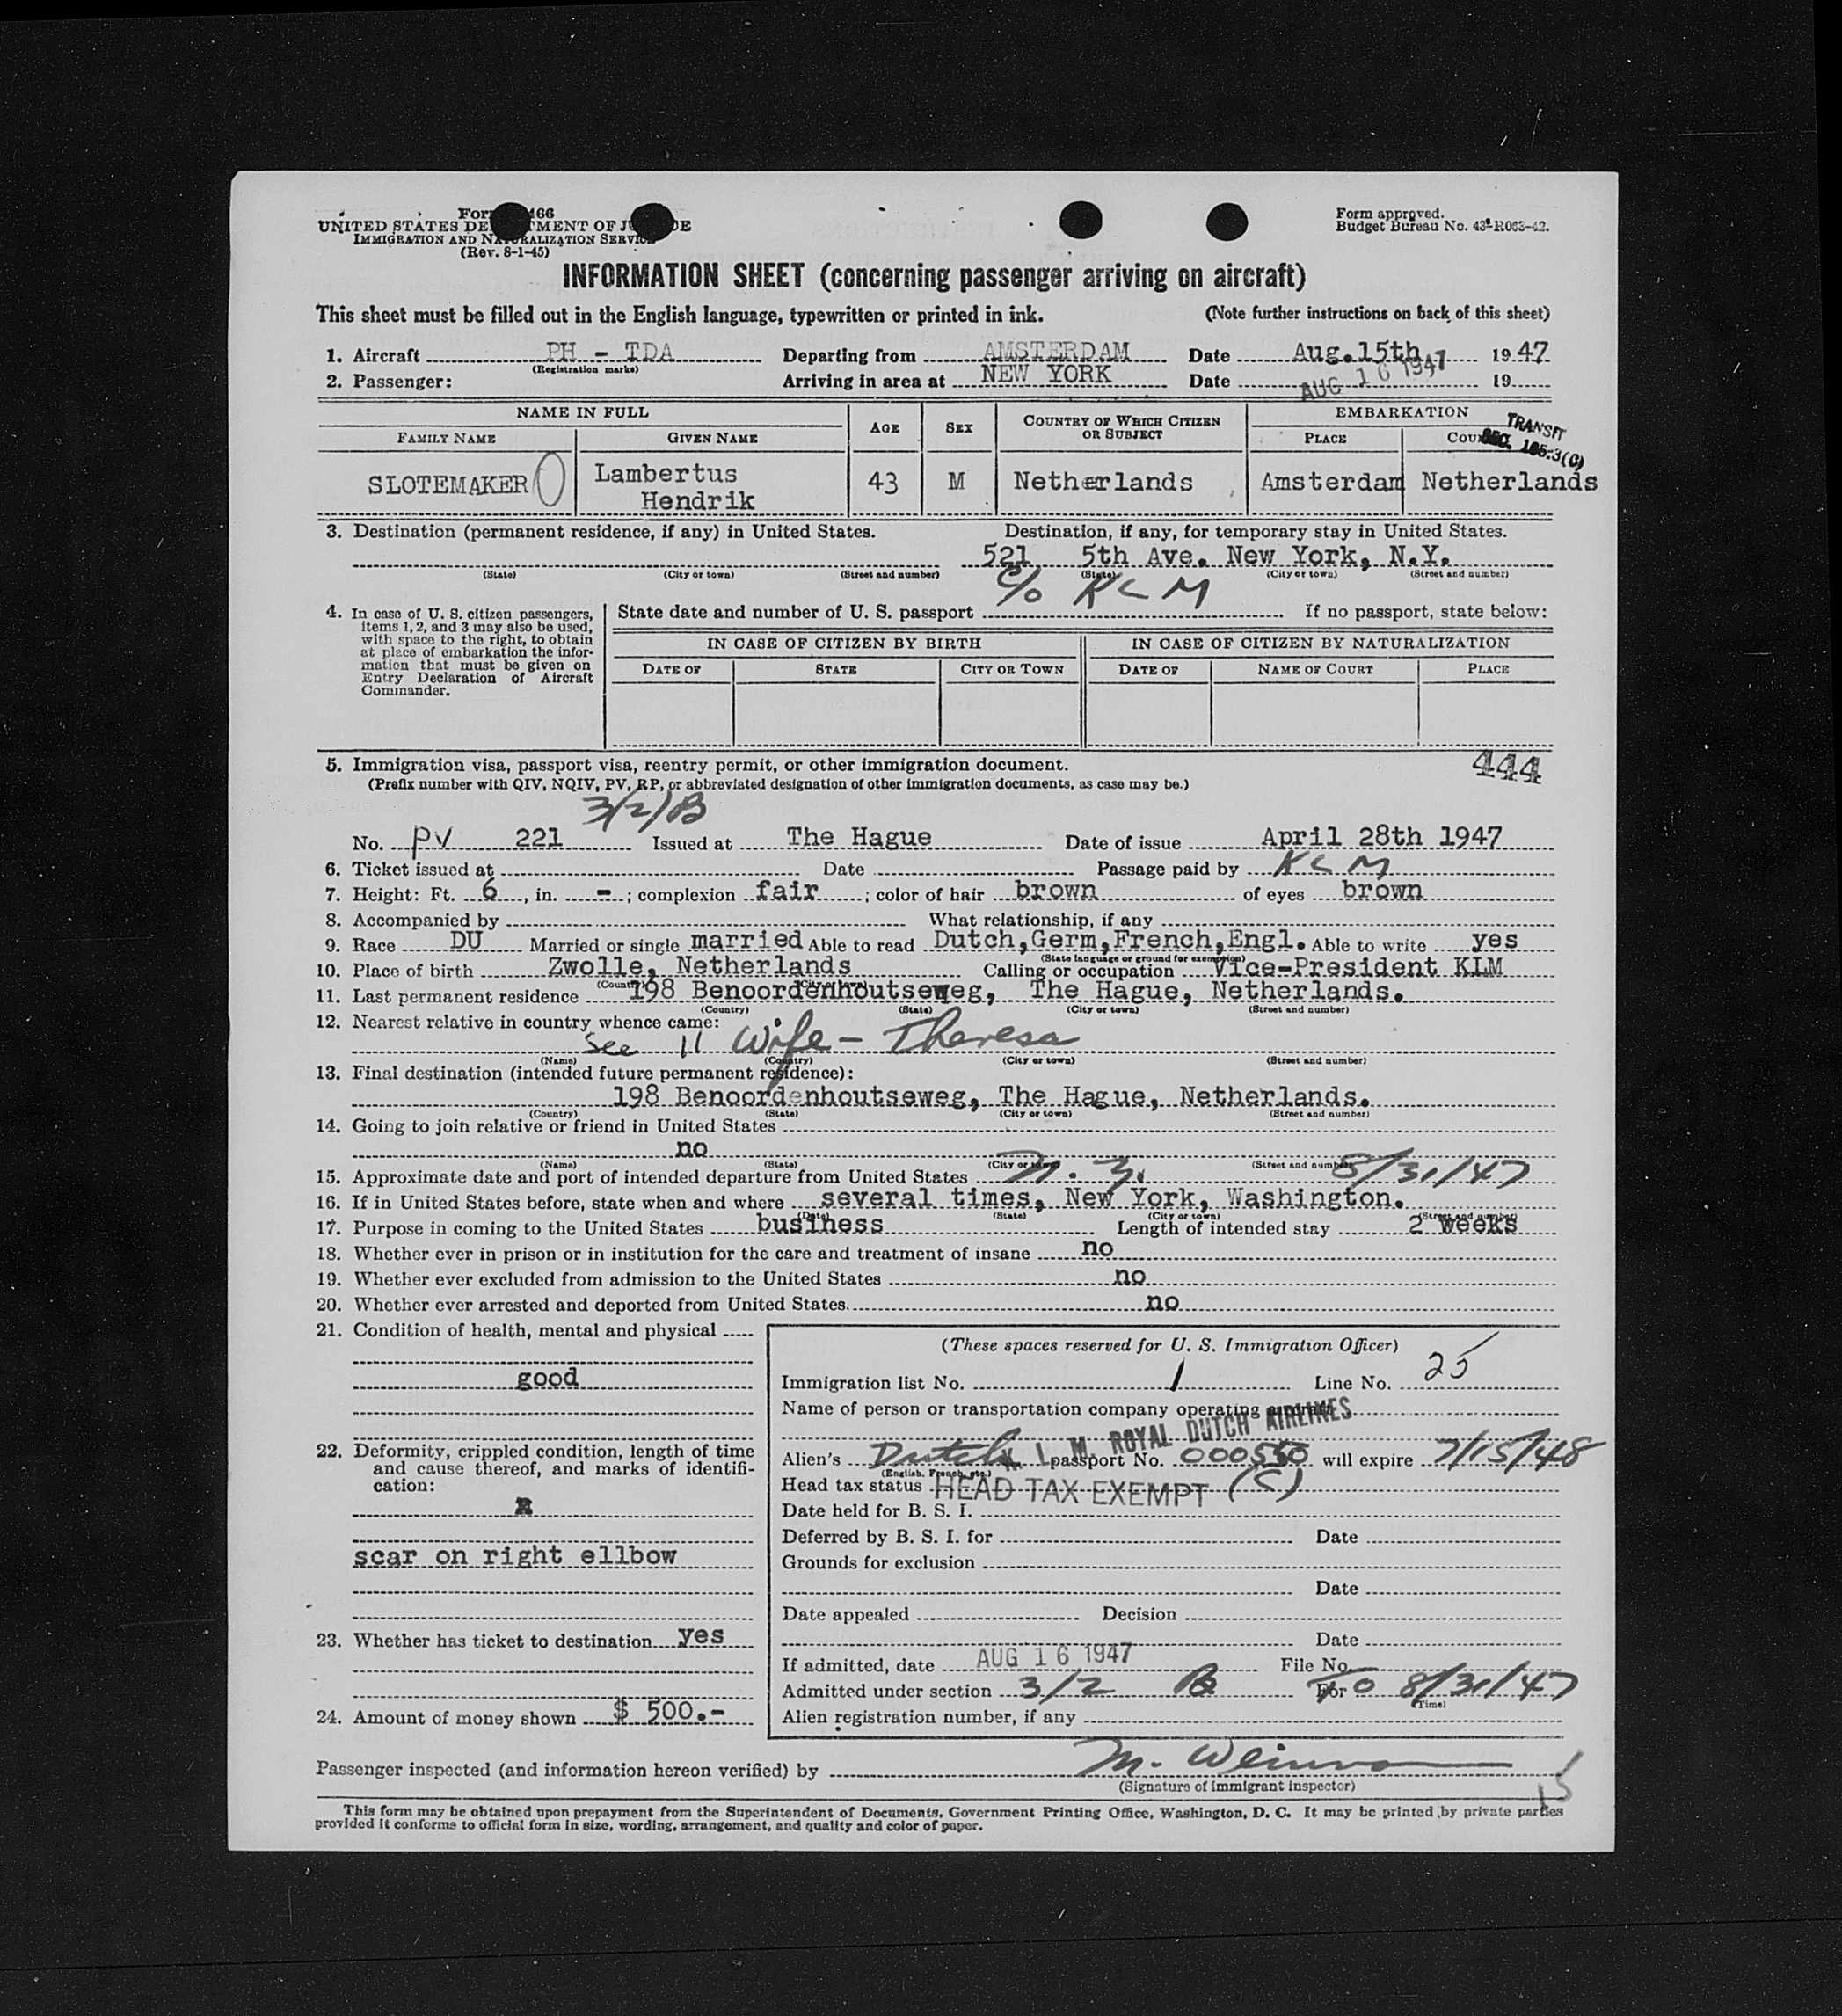 Form 466
UNITED STATES DEPARTMENT OF JUSTICE
IMMIGRATION AND NATURALIZATION SERVICE
(Rev. 8-1-45)
Form approved.
Budget Bureau No. 43-R063-42.
INFORMATION SHEET (concerning passenger arriving on aircraft)
This sheet must be filled out in the English language, typewritten or printed in ink. (Note further instructions on back of this sheet)
1. Aircraft PH - TDA Departing from AMSTERDAM Date Aug.15th, 1947
(Registration marks)
2. Passenger: Arriving in area at NEW YORK Date AUG 16 1947 19
NAME IN FULL AGE SEX COUNTRY OF WHICH CITIZEN OR SUBJECT EMBARKATION
FAMILY NAME GIVEN NAME PLACE COUNTRY
TRANSIT
SEC. 165.3(C)
SLOTEMAKER Lambertus Hendrik 43 M Netherlands Amsterdam Netherlands
3. Destination (permanent residence, if any) in United States. Destination, if any, for temporary stay in United States.
521 5th Ave. New York, N.Y.
(State) (City or town) (Street and number) (State) (City or town) (Street and number)
C/o KLM
4. In case of U. S. citizen passengers,
items 1, 2, and 3 may also be used,
with space to the right, to obtain
at place of embarkation the infor-
mation that must be given on
Entry Declaration of Aircraft
Commander.
State date and number of U. S. passport If no passport, state below:
IN CASE OF CITIZEN BY BIRTH IN CASE OF CITIZEN BY NATURALIZATION
DATE OF STATE CITY OR TOWN DATE OF NAME OF COURT PLACE
5. Immigration visa, passport visa, reentry permit, or other immigration document. 444
(Prefix number with QIV, NQIV, PV, RP, or abbreviated designation of other immigration documents, as case may be.)
3/2/B
No. PV 221 Issued at The Hague Date of issue April 28th 1947
6. Ticket issued at Date Passage paid by KLM
7. Height: Ft. 6, in. -; complexion fair; color of hair brown of eyes brown
8. Accompanied by What relationship, if any
9. Race DU Married or single married Able to read Dutch,Germ,French,Engl. Able to write yes
(State language or ground for exemption)
10. Place of birth Zwolle, Netherlands Calling or occupation Vice-President KLM
(Country) (City or town)
11. Last permanent residence 198 Benoordenhoutseweg, The Hague, Netherlands.
(Country) (State) (City or town) (Street and number)
12. Nearest relative in country whence came:
See 11 Wife - Theresa
(Name) (Country) (City or town) (Street and number)
13. Final destination (intended future permanent residence):
198 Benoordenhoutseweg, The Hague, Netherlands.
(Country) (State) (City or town) (Street and number)
14. Going to join relative or friend in United States
no
(Name) (State) (City or town) (Street and number)
15. Approximate date and port of intended departure from United States N.Y. 8/31/47
16. If in United States before, state when and where several times, New York, Washington.
(Date) (State) (City or town) (Street and number)
17. Purpose in coming to the United States business Length of intended stay 2 weeks
18. Whether ever in prison or in institution for the care and treatment of insane no
19. Whether ever excluded from admission to the United States no
20. Whether ever arrested and deported from United States no
21. Condition of health, mental and physical
good
22. Deformity, crippled condition, length of time
and cause thereof, and marks of identifi-
cation:
scar on right ellbow
23. Whether has ticket to destination yes
24. Amount of money shown $ 500.-
(These spaces reserved for U. S. Immigration Officer)
Immigration list No. 1 Line No. 25
Name of person or transportation company operating aircraft
K. L. M. ROYAL DUTCH AIRLINES
Alien's Dutch passport No. 000550 will expire 7/15/48
(English, French, etc.)
Head tax status HEAD TAX EXEMPT (C)
Date held for B. S. I.
Deferred by B. S. I. for Date
Grounds for exclusion
Date
Date appealed Decision
Date
If admitted, date AUG 16 1947 File No.
Admitted under section 3/2 B For TO 8/31/47
(Time)
Alien registration number, if any
Passenger inspected (and information hereon verified) by M.
(Signature of immigrant inspector)
15
This form may be obtained upon prepayment from the Superintendent of Documents, Government Printing Office, Washington, D. C. It may be printed by private parties
provided it conforms to official form in size, wording, arrangement, and quality and color of paper.